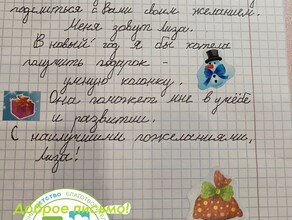 поделиться с вами своим желанием.
Меня зовут Лиза.
В новый год я бы хотела
получить подарок -
умную колонку.
Она поможет мне в учёбе
и развитии.
С наилучшими пожеланиями,
Лиза!
Доброе письмо!